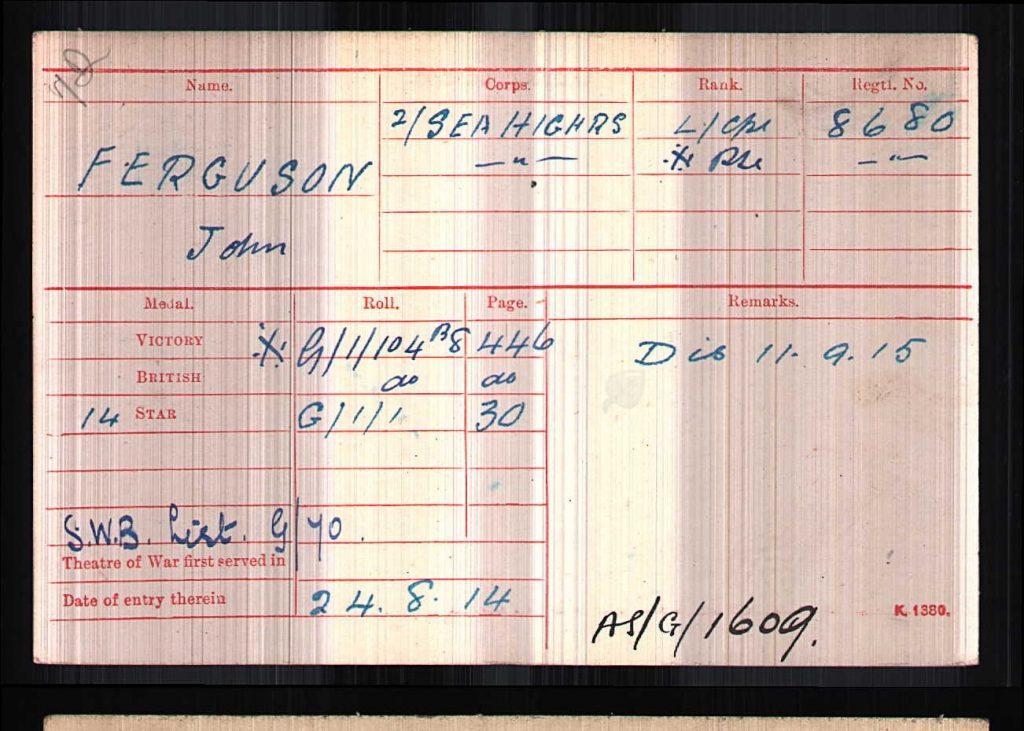 Name. Corps. Rank. Regtl. No.
2/SEA HIGHRS L/Cpl 8680
FERGUSON —"— ※ Pte —"—
John
Medal. Roll. Page. Remarks.
VICTORY ※ G/1/104 B8 446 Dis 11.9.15
BRITISH do do
14 STAR G/1/1 30
S.W.B. List. G/70.
Theatre of War first served in
Date of entry therein 24.8.14
AS/G/1609. K. 1380.